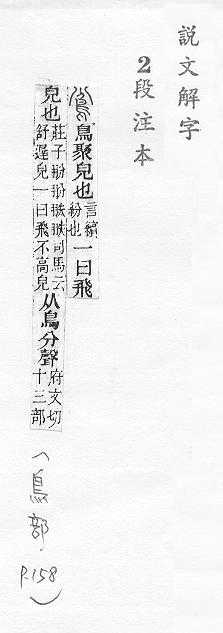 説文解字
2段注本
鳻鳥聚皃也言繽紛也一曰飛
皃也莊子翂翂翐翐司馬云舒遲皃一曰飛不高皃从鳥分聲府文切十三部
(鳥部 p.158)